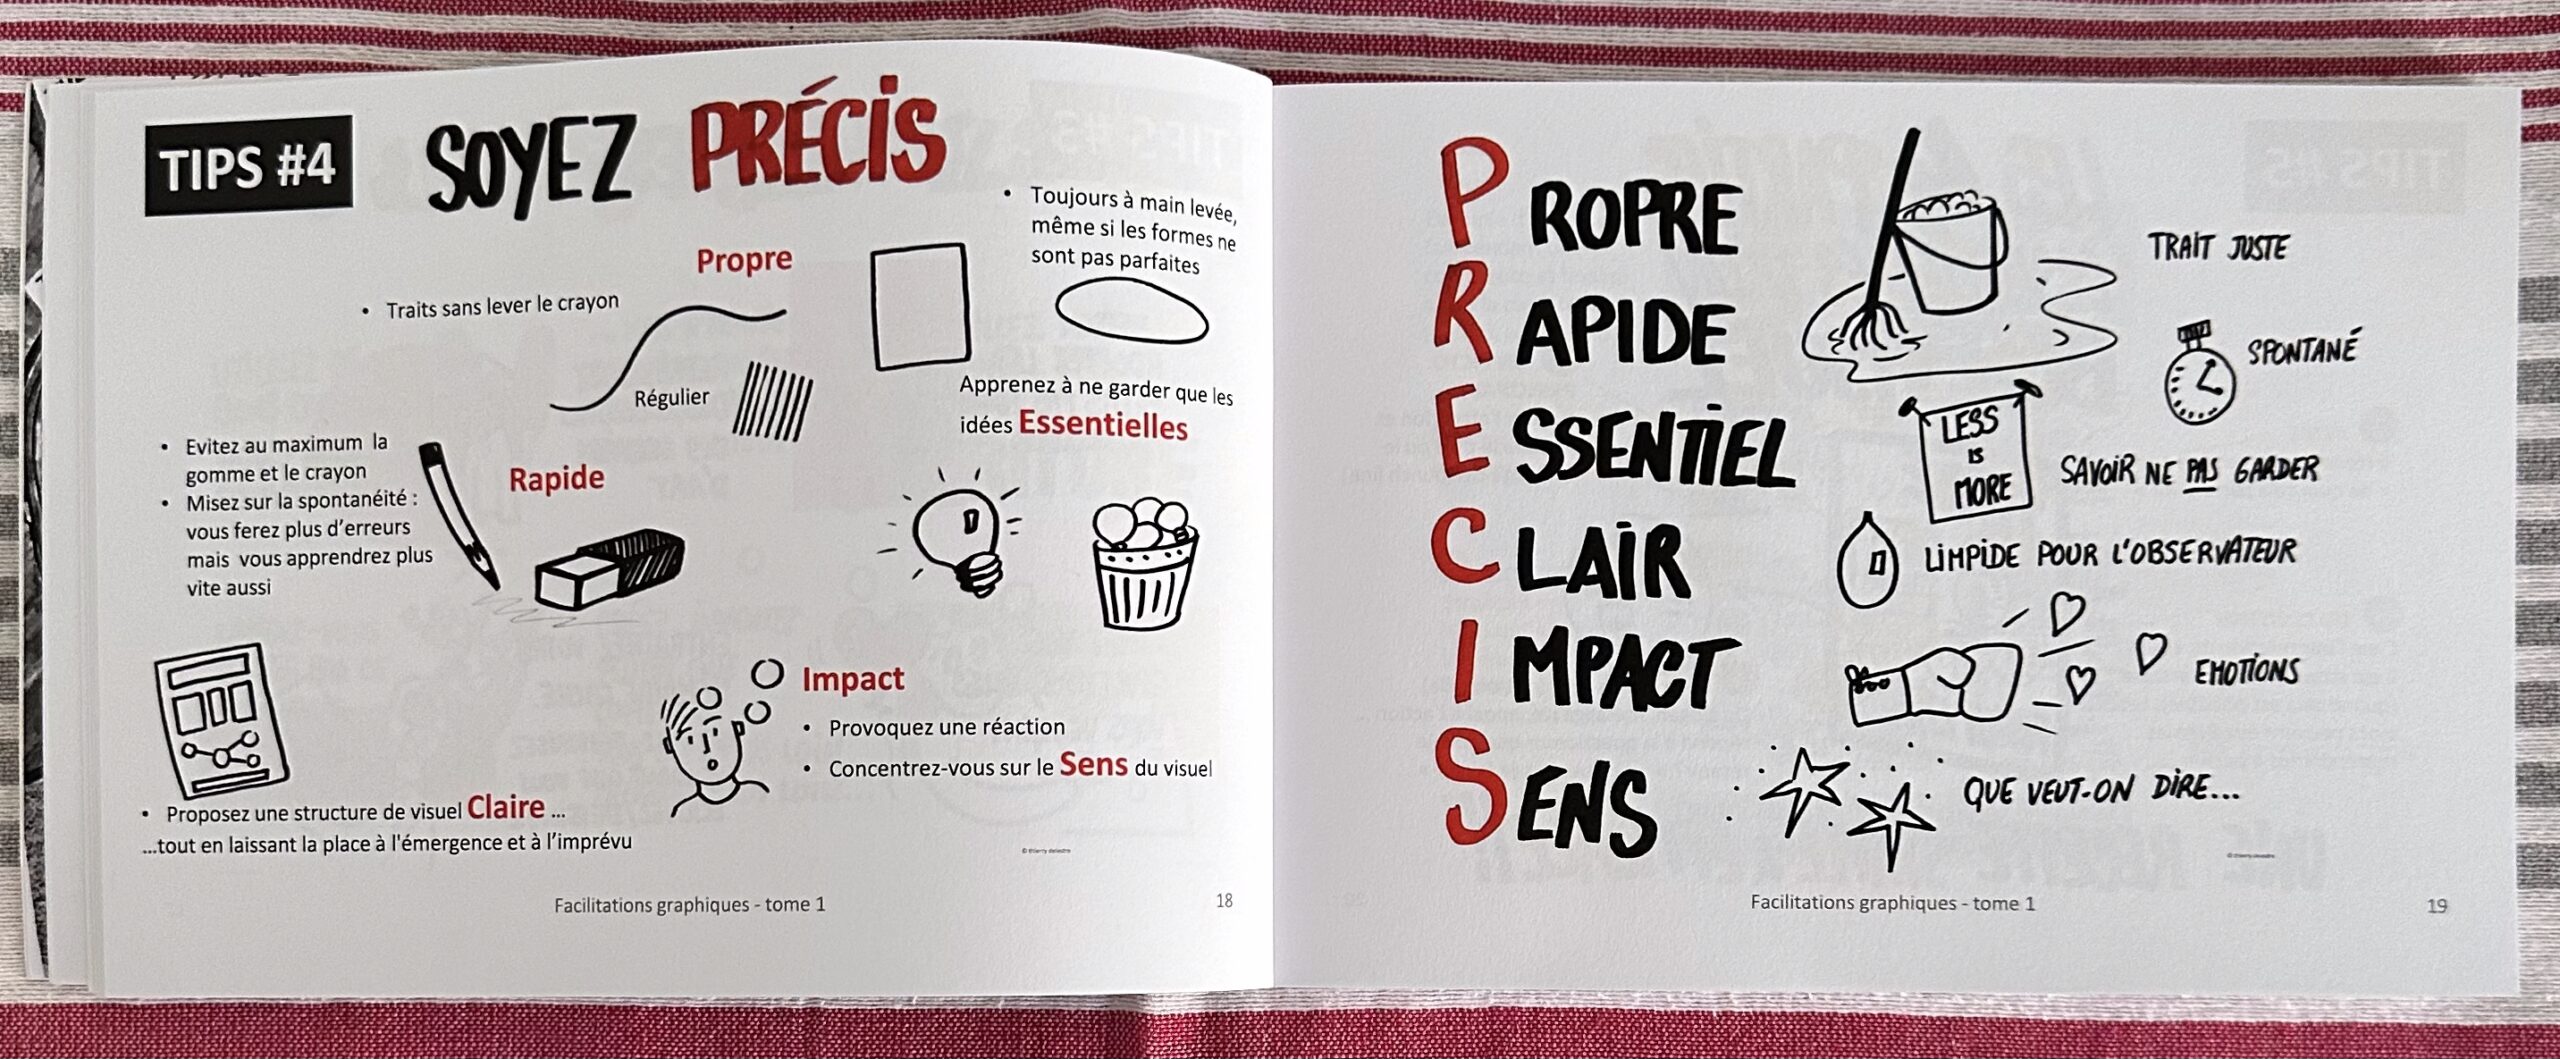 TIPS #4
SOYEZ PRÉCIS
Propre
• Traits sans lever le crayon
Régulier
• Toujours à main levée,
même si les formes ne
sont pas parfaites
Apprenez à ne garder que les
idées Essentielles
• Evitez au maximum la
gomme et le crayon
• Misez sur la spontanéité :
vous ferez plus d'erreurs
mais vous apprendrez plus
vite aussi
Rapide
• Proposez une structure de visuel Claire ...
...tout en laissant la place à l'émergence et à l'imprévu
Impact
• Provoquez une réaction
• Concentrez-vous sur le Sens du visuel
© thierry delestre
Facilitations graphiques - tome 1
18
PROPRE
TRAIT JUSTE
RAPIDE
SPONTANÉ
ESSENTIEL
LESS
IS
MORE
SAVOIR NE PAS GARDER
CLAIR
LIMPIDE POUR L'OBSERVATEUR
IMPACT
EMOTIONS
SENS
QUE VEUT-ON DIRE...
© thierry delestre
Facilitations graphiques - tome 1
19